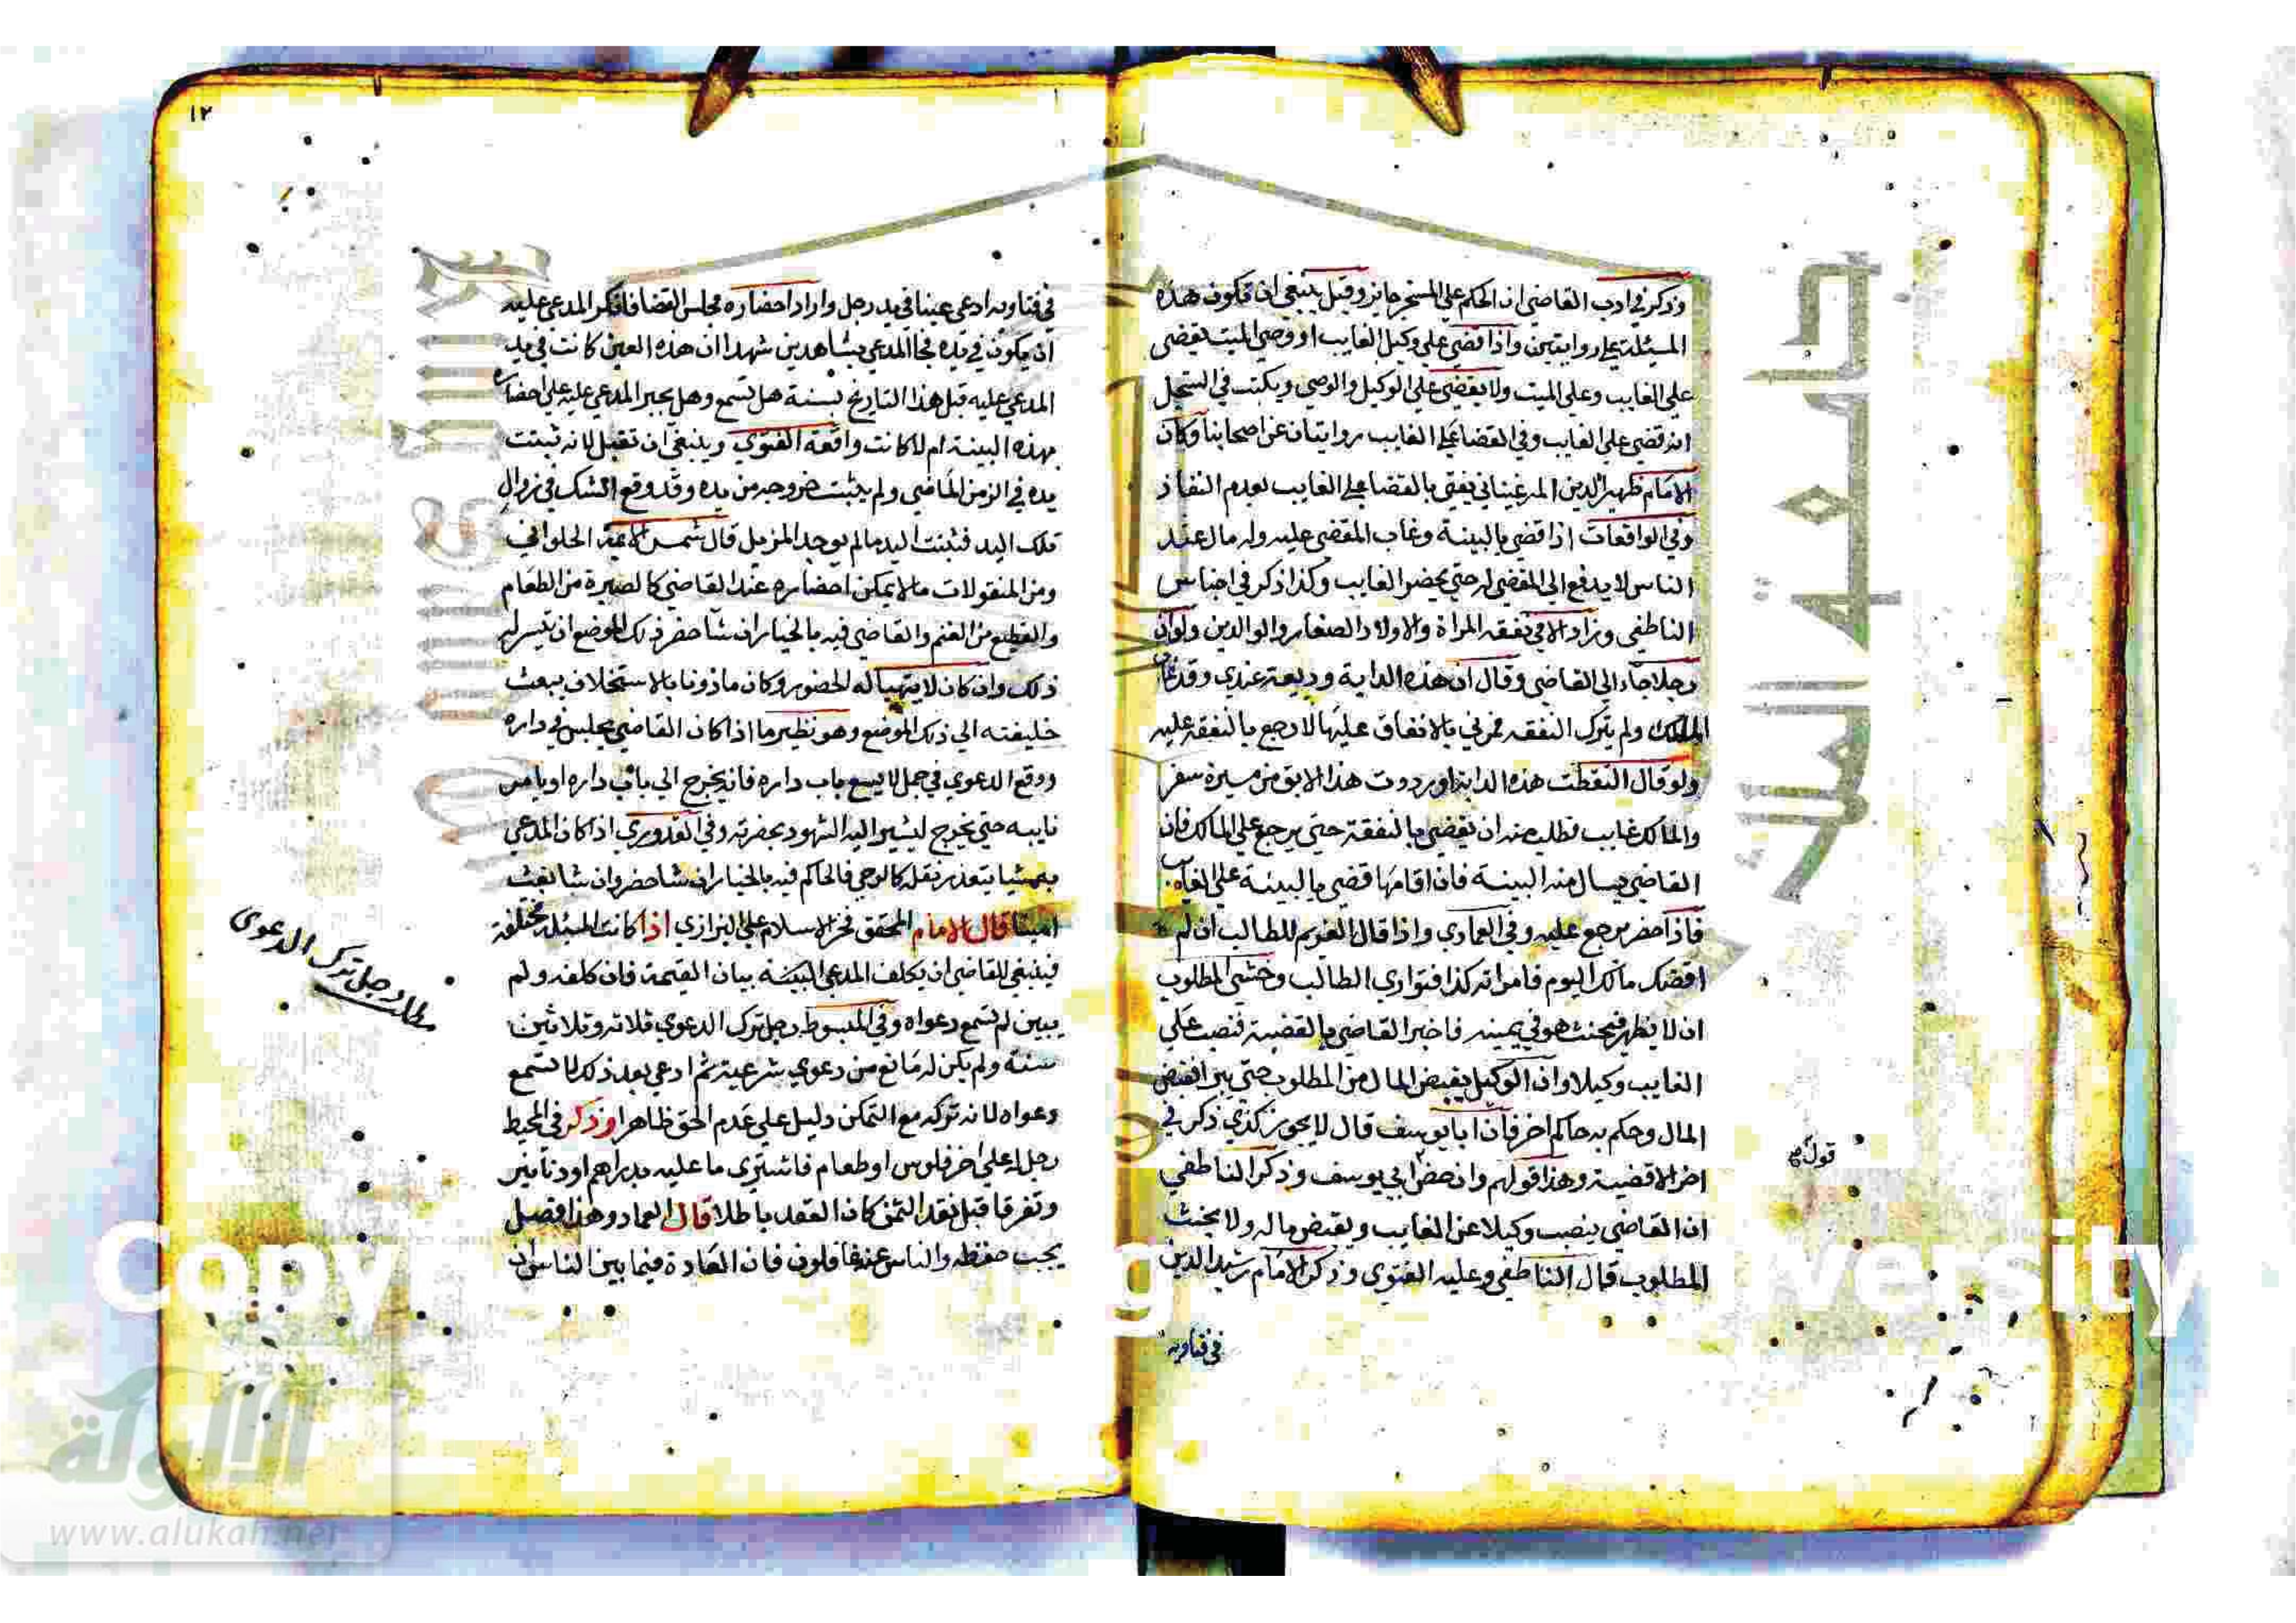 وذكر في ادب القاضي ان الحكم علي المسخر جايز وقيل ينبغي ان تكون هذه
المسئلة علي روايتين واذا قضي علي وكيل الغايب او وصي الميت يقضي
علي الغايب وعلي الميت ولا يقضي علي الوكيل والوصي ويكتب في السجل
انه قضي علي الغايب وفي القضا علي الغايب روايتان عن اصحابنا وكان
الامام ظهير الدين المرغيناني يفتي بالقضا علي الغايب بعدم النفاذ
وفي الواقعات اذا قضي بالبينة وغاب المقضي عليه وله مال عند
الناس لا يدفع الي المقضي له حتي يحضر الغايب وكذا ذكر في اجناس
الناطفي وزاد الا في نفقة المراة والاولاد الصغار والوالدين ولو ان
رجلا جاء الي القاضي وقال ان هذه الدابة وديعة عندي وقد غاب
المالك ولم يترك النفقه فمرني بالانفاق عليها لارجع بالنفقة عليه
ولو قال التقطت هذه الدابة او رددت هذا الابق من مسيرة سفر
والمالك غايب فطلب منه ان يقضي بالنفقة حتي يرجع علي المالك فان
القاضي يسال منه البينة فان اقامها قضي بالبينة علي الغايب
فاذا حضر يرجع عليه وفي العمادي واذا قال الغريم للطالب ان لم
اقضك مالك اليوم فامراته كذا فتواري الطالب وخشي المطلوب
ان لا يظهر فيحنث هو في يمينه فاخبر القاضي بالقضية فنصب علي
الغايب وكيلا وان الوكيل يقبض المال من المطلوب حتي يبر القبض
المال وحكم به حاكم اخر فان ابا يوسف قال لا يجوز كذي ذكر في
اخر الاقضية وهذا قولهم وان خص ابي يوسف وذكر الناطفي
قول صح
ان القاضي ينصب وكيلا عن الغايب ويقبض ماله ولا يحنث
المطلوب قال الناطفي وعليه الفتوي وذكر الامام رشيد الدين
في فتاويه
١٢
في فتاويه ادعي عينا في يد رجل واراد احضاره مجلس القضا فانكر المدعي عليه
ان يكون في يده فجا المدعي بشاهدين شهدا ان هذه العين كانت في يد
المدعي عليه قبل هذا التاريخ بسنة هل تسمع وهل يجبر المدعي عليه علي احضاره
بهذه البينة ام لا كانت واقعة الفتوي وينبغي ان تقبل لانه ثبتت
يده في الزمن الماضي ولم يثبت خروجه من يده وقد وقع الشك في زوال
تلك اليد فثبتت اليد مالم يوجد المزيل قال شمس الائمة الحلواني
ومن المنقولات ما لا يمكن احضاره عند القاضي كالصبرة من الطعام
والقطيع من الغنم والقاضي فيه بالخيار ان شا حضر ذلك الموضع ان تيسر له
ذلك وان كان لا يتهيا له الحضور وكان ماذونا بالاستخلاف يبعث
خليفته الي ذلك الموضع وهو نظير ما اذا كان القاضي يجلس في داره
ووقع الدعوي في جمل لا يسع باب داره فانه يخرج الي باب داره او يامر
نايبه حتي يخرج ليشير اليه الشهود بحضرته وفي القدوري اذا كان المدعي
به شيا يتعذر نقله كالرحي فالحاكم فيه بالخيار ان شا حضر وان شا بعث
امينا قال الامام المحقق فخر الاسلام علي البزازي اذا كانت المسئلة مختلفة
فينبغي للقاضي ان يكلف المدعي البينة بيان القيمة فان كلفه ولم
يبين لم تسمع دعواه وفي المبسوط رجل ترك الدعوي ثلاثه وثلاثين
مطلب رجل ترك الدعوي
سنة ولم يكن له مانع من دعوي شرعية ثم ادعي بعد ذلك لا تسمع
دعواه لانه تركه مع التمكن دليل علي عدم الحق ظاهرا وذكر في المحيط
رجل له علي اخر فلوس او طعام فاشتري ما عليه بدراهم او دنانير
وتفرقا قبل نقد الثمن كان العقد باطلا قال العماد وهذا فصل
يجب حفظه والناس عنه غافلون فان العادة فيما بين الناس ان
جامعة الملك سعود
Copy
versity
الألوكة
www.alukah.net